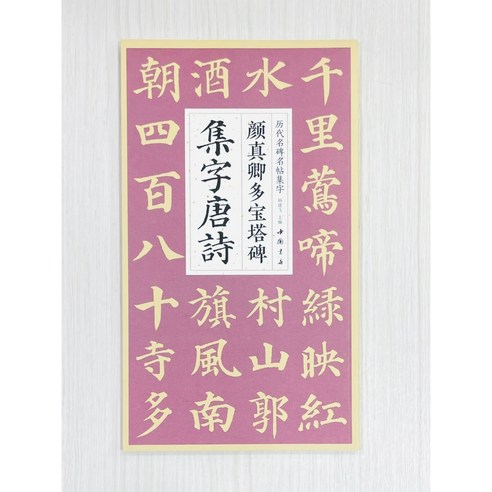 千里鶯啼綠映紅
水村山郭
酒旗風南
朝四百八十寺多
历代名碑名帖集字
颜真卿多宝塔碑
集字唐詩
主编
中国书店